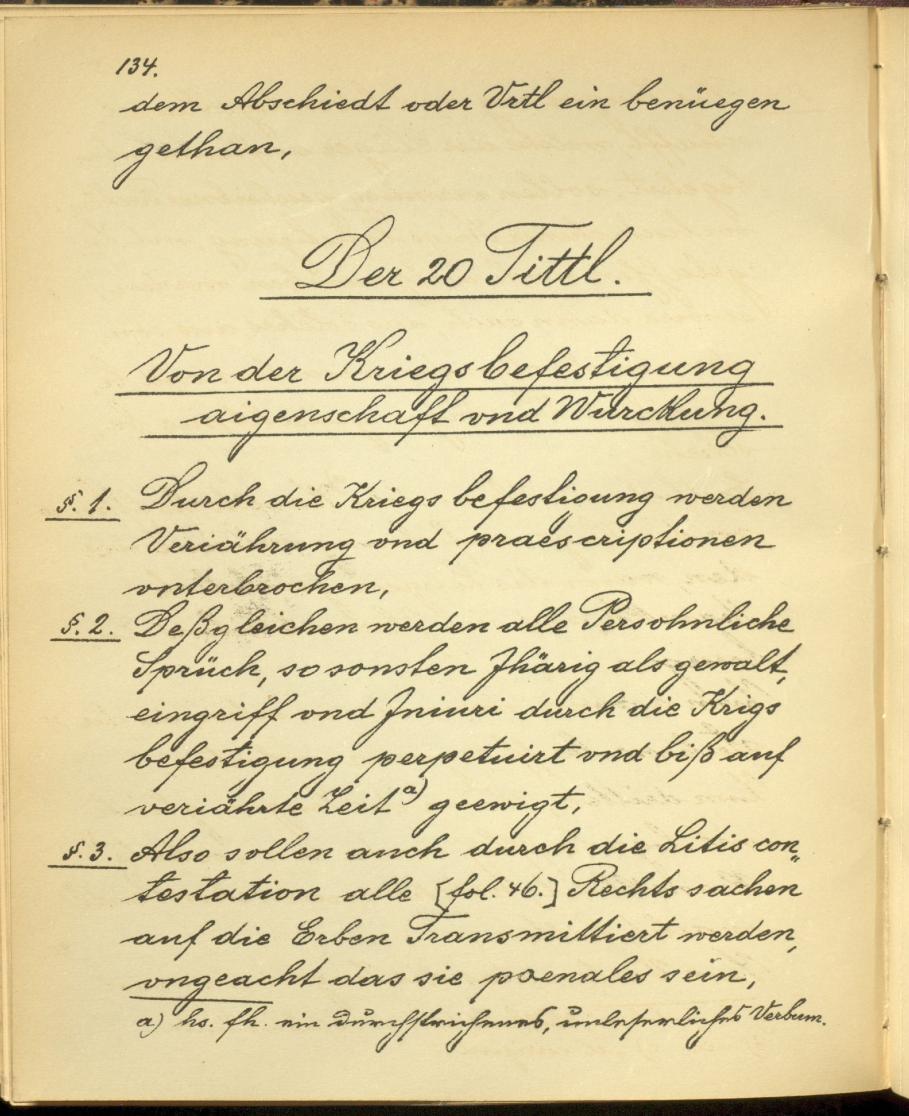 134.
dem Abschiedt oder Vrtl ein benüegen
gethan,
Der 20 Tittl.
Von der Kriegsbefestigung
aigenschaft vnd Würckung.
§. 1. Durch die Kriegs befestigung werden
Veriährung vnd praescriptionen
vnterbrochen,
§. 2. Deßgleichen werden alle Persohnliche
Sprüch, so sonsten Jhärig als gewalt,
eingriff vnd Jniuri durch die Krigs
befestigung perpetuirt vnd biß auf
veriährte Zeit a) geewigt,
§. 3. Also sollen auch durch die Litis con„
testation alle [fol. 46.] Rechts sachen
auf die Erben Transmittiert werden,
vngeacht das sie poenales sein,
a) hs. fh. ein durchstrichenes, unleserliches Verbum.